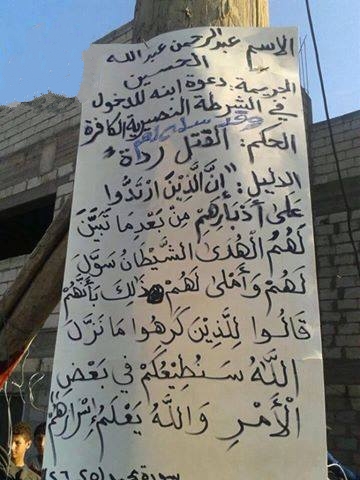 الاسم عبدالرحمن عبدالله
الحسين
الجريمة: دعوة ابنه للدخول
في الشرطة النصيرية الكافرة
الحكم: القتل ردة
الدليل: "إِنَّ الَّذِينَ ارْتَدُّوا
عَلَى أَدْبَارِهِم مِنْ بَعْدِ مَا تَبَيَّنَ
لَهُمُ الْهُدَى الشَّيْطَانُ سَوَّلَ
لَهُمْ وَأَمْلَى لَهُمْ ذَلِكَ بِأَنَّهُمْ
قَالُوا لِلَّذِينَ كَرِهُوا مَا نَزَّلَ
اللَّهُ سَنُطِيعُكُمْ فِي بَعْضِ
الْأَمْرِ وَاللَّهُ يَعْلَمُ إِسْرَارَهُمْ
سورة محمد